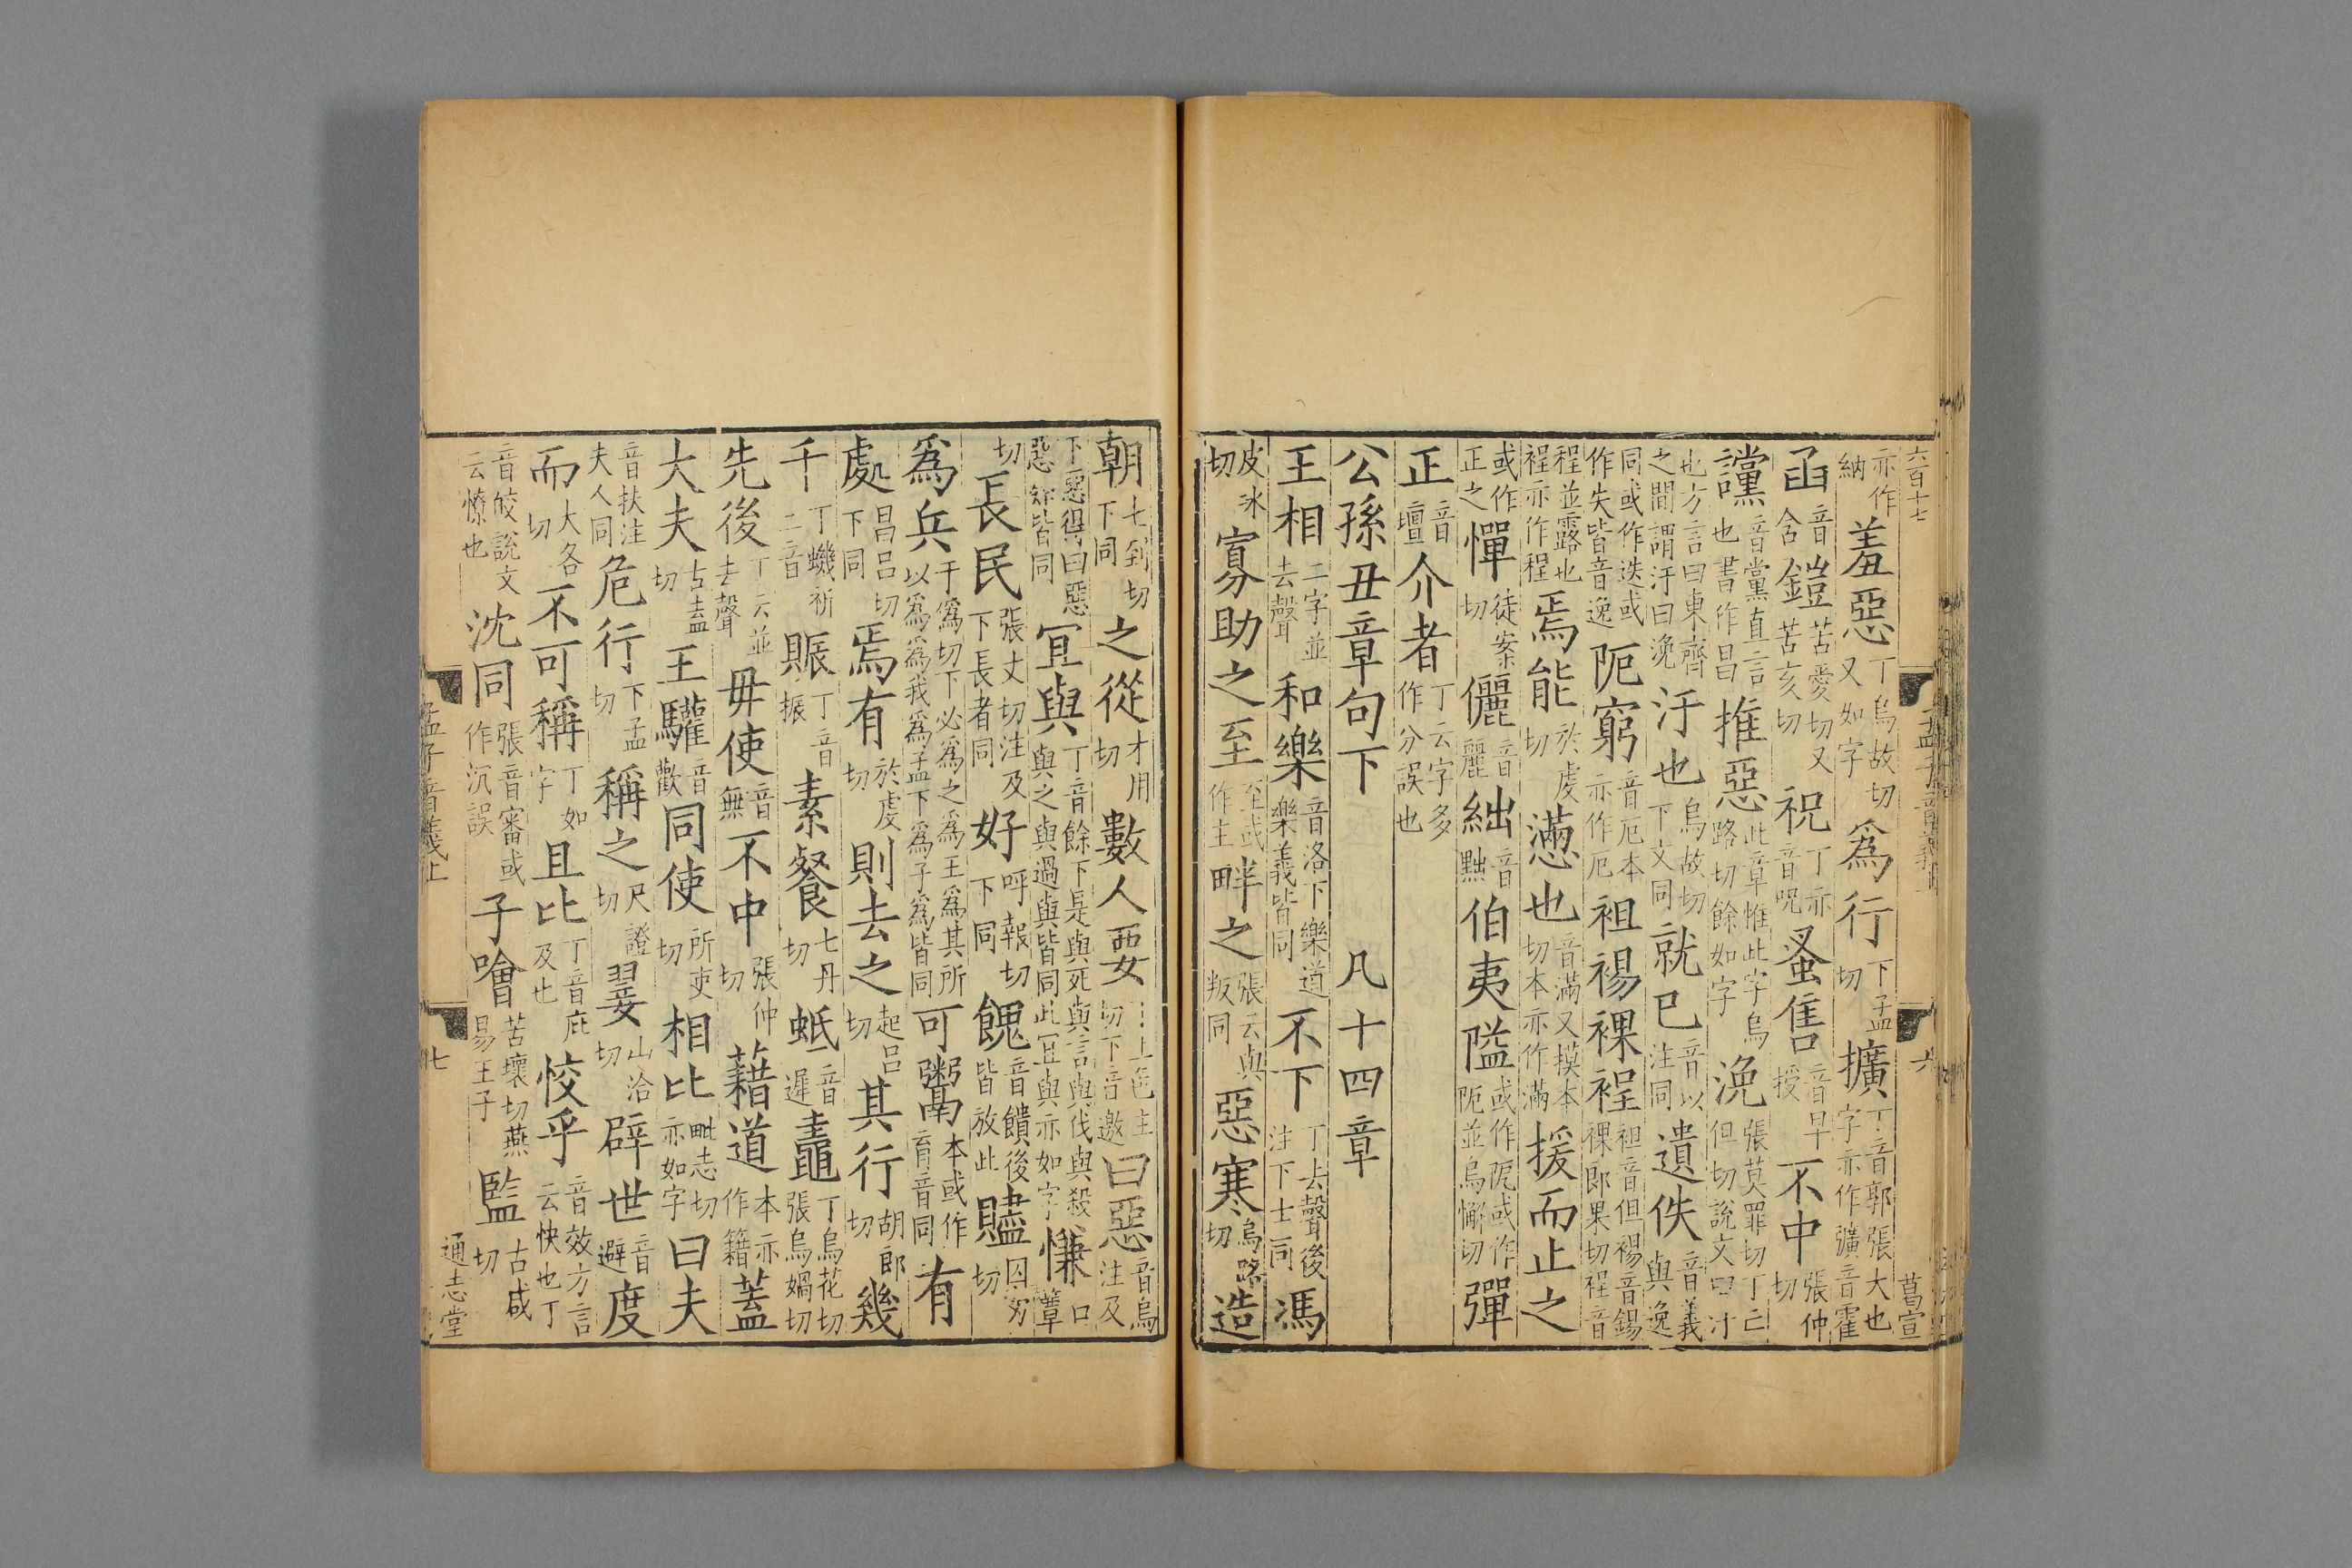 六百十七
孟子音義上
六
莒宣
亦作納羞惡丁烏故切又如字爲行下孟切擴丁音郭張大也字亦作彍音霍
函音含鎧苦愛切又苦亥切祝丁亦音呪蚤售音早授不中張仲切
讜音黨直言也書作昌推惡此章惟此字烏路切餘如字浼張莫罪切丁亡但切說文曰汙
也方言曰東齊之間謂汙曰浼汙也烏故切下文同就已音以注同遺佚音義與逸
同或作迭或作失皆音逸阨窮音厄本亦作厄袒裼裸裎袒音但裼音錫裸郎果切裎音
程並露也裎亦作程焉能於虔切懣也音滿又摸本切本亦作滿援而止之
或作正之憚徒案切儷音麗絀音黜伯夷隘或作阸或作阨並烏懈切彈
正音壇介者丁云字多作分誤也
公孫丑章句下 凡十四章
王相二字並去聲和樂音洛下樂道樂義皆同不下丁去聲後注下士同馮
皮冰切寡助之至至或作主畔之張云與叛同惡寒烏路切造
朝七到切下同之從才用切數人要上色主切下音邀曰惡音烏注及
下惡得曰惡惡知皆同宜與丁音餘下是與死與言與伐與殺與之與過與皆同此宜與亦如字慊口簟
切長民張丈切注及下長者同好呼報切下同餽音饋後皆放此贐囚刃切
爲兵于僞切下必爲之爲王爲其所以爲爲我爲孟下爲子爲皆同可鬻本或作育音同有
處昌呂切下同焉有於虔切則去之起呂切其行胡郎切幾
千丁蟣祈二音賑丁音振素餐七丹切蚳音遲鼃丁烏花切張烏媧切
先後丁云並去聲毋使音無不中張仲切藉道本亦作籍蓋
大夫古盍切王驩音歡同使所吏切相比毗志切亦如字曰夫
音扶注夫人同危行下孟切稱之尺證切翣山洽切辟世音避度
而大各切不可稱丁如字且比丁音庇及也恔乎音效方言云快也丁
音皎說文云憭也沈同張音審或作沉誤子噲苦壞切燕易王子監古咸切
孟子音義上
七
通志堂